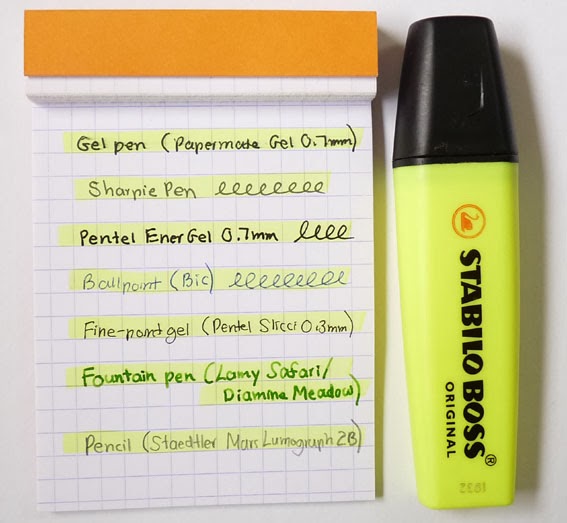 Gel pen (Papermate Gel 0.7mm)
Sharpie Pen
Pentel EnerGel 0.7mm
Ballpoint (Bic)
Fine-point gel (Pentel Slicci 0.3mm)
Fountain pen (Lamy Safari/
Diamine Meadow)
Pencil (Staedtler Mars Lumograph 2B)
STABILO BOSS®
ORIGINAL